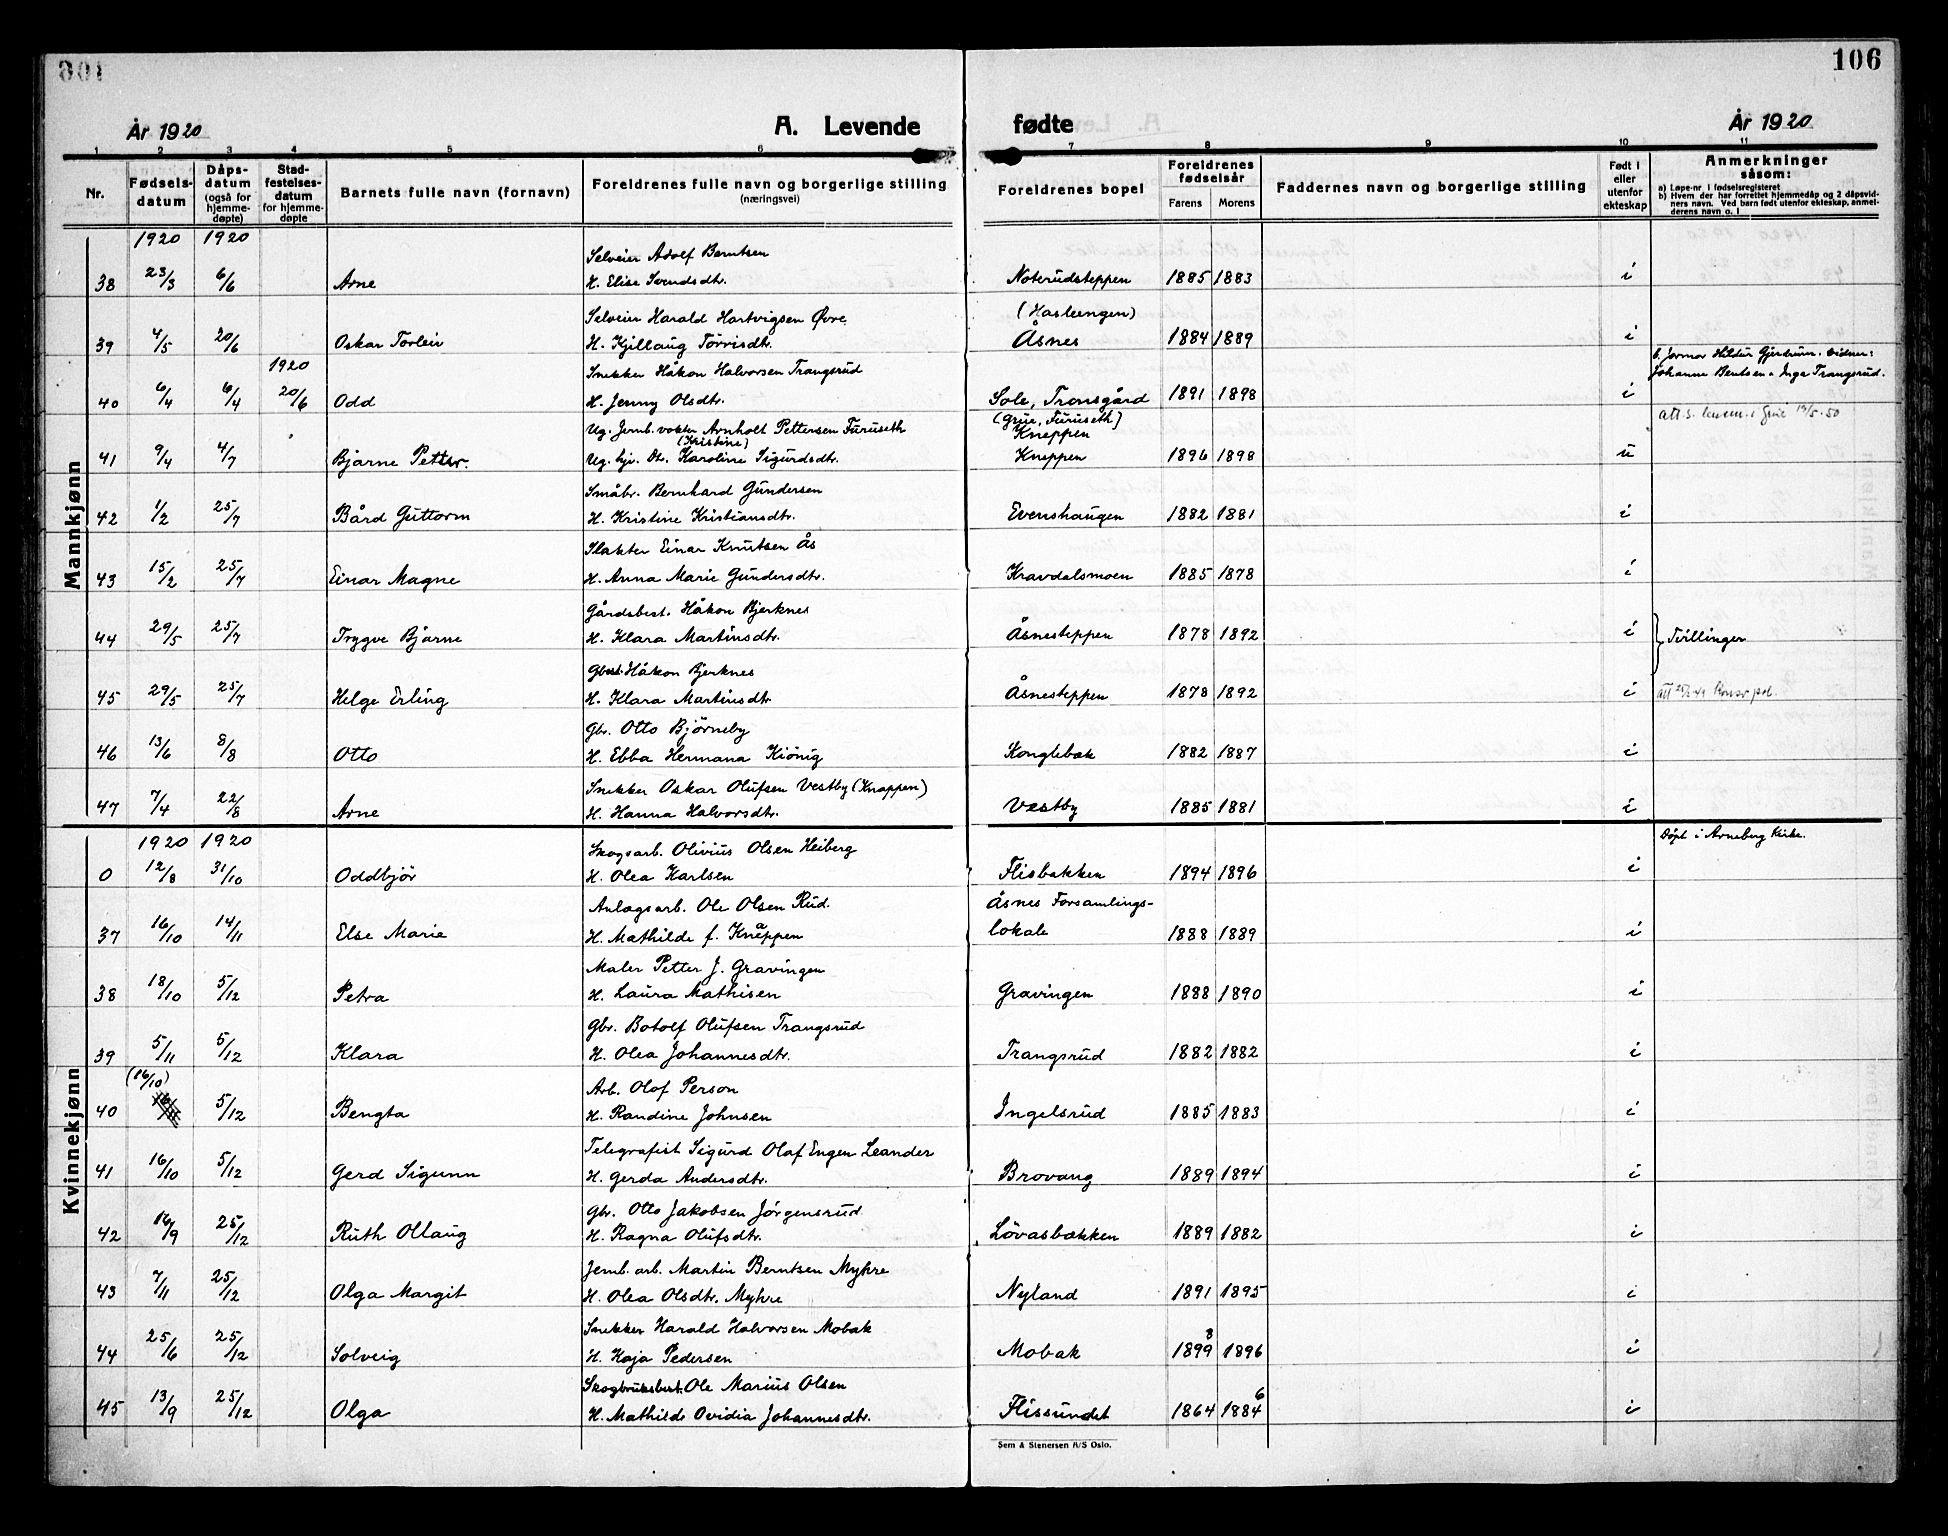 106
År 1920
A. Levende
fødte
År 1920
1 2 3 4 5 6 7 8 9 10 11
Nr.
Fødsels-
datum
Dåps-
datum
(også for
hjemme-
døpte)
Stad-
festelses-
datum
for hjemme-
døpte
Barnets fulle navn (fornavn)
Foreldrenes fulle navn og borgerlige stilling
(næringsvei)
Foreldrenes bopel
Foreldrenes
fødselsår
Farens
Morens
Faddernes navn og borgerlige stilling
Født i
eller
utenfor
ekteskap
Anmerkninger
såsom:
a) Løpe-nr. i fødselsregisteret
b) Hvem der har forrettet hjemmedåp og 2 dåpsvid-
ners navn. Ved barn født utenfor ekteskap, anmel-
derens navn o. l
Mannkjønn
1920 1920
Selveier Adolf Berntsen
38 23/3 6/6 Arne H. Elise Svendsdtr. Noterudsteppen 1885 1883 i
Selveier Harald Hartvigsen Øvre (Hasleengen)
39 4/5 20/6 Oskar Torleiv H. Kjellaug Torrisdtr. Åsnes 1884 1889 i
1920 Snekker Håkon Halvorsen Trangsrud b. Jormor Hilder Gjerdrum. vidner:
Johanne Bentsen o Inga Trangsrud.
40 6/4 6/4 20/6 Odd H. Jenny Olsdtr. Sole, Tronsgård 1891 1898 i
Ug. Jernb. vokter Arnholt Pettersen Furuseth (Grue, Furuseth)
Kneppen
(Kristine)
41 9/4 4/7 Bjarne Petter. Ug. tjr. Dtr. Karoline Sigurdsdtr. Kneppen 1896 1898 u
Småbr. Bernhard Gundersen
42 1/2 25/7 Bård Guttorm H. Kristine Kristiansdtr. Evenshaugen 1882 1881 i
Slakter Einar Knutsen Ås
43 15/2 25/7 Einar Magne H. Anna Marie Gundersdtr. Kravdalsmoen 1885 1878 i
Gårdsbest. Håkon Bjerknes
44 29/5 25/7 Trygve Bjarne H. Klara Martinsdtr. Åsnesteppen 1878 1892 i Tvillinger
Gbest. Håkon Bjerknes
45 29/5 25/7 Helge Erling H. Klara Martinsdtr. Åsnesteppen 1878 1892 i
Gbr. Otto Bjørneby
46 13/6 8/8 Otto H. Ebba Hermana Kiönig Konglebak 1882 1887 i
Snekker Oskar Olufsen Vestby (Knappen)
47 7/4 22/8 Arne H. Hanna Halvorsdtr. Vestby 1885 1881 i
Kvinnekjønn
1920 1920
Skogsarb. Olivius Olsen Heiberg Döpt i Arneberg Kirke.
0 12/8 31/10 Oddbjör H. Olea Karlsen Flisbakken 1894 1896 i
Anlægsarb. Ole Olsen Rud. Åsnes Forsamlings-
37 16/10 14/11 Else Marie H. Mathilde f. Knappen lokale 1888 1889 i
Maler Petter J. Gravingen
38 18/10 5/12 Petra H. Laura Mathisen Gravingen 1888 1890 i
Gbr. Botolf Olufsen Trangsrud
39 5/11 5/12 Klara H. Olea Johannesdtr. Trangsrud 1882 1882 i
(16/10) Arb. Olof Person
40 5/12 Bengta H. Randine Johnsen Ingelsrud 1885 1883 i
Telegrafist Sigurd Olaf Engen Leander
41 16/10 5/12 Gerd Sigunn H. Gerda Andersdtr. Brovang 1889 1894 i
Gbr. Otto Jakobsen Jørgensrud
42 16/9 25/12 Ruth Ollaug H. Ragna Olufsdtr. Lövasbækken 1889 1882 i
Jernb. arb. Martin Berntsen Myhre
43 7/11 25/12 Olga Margit H. Olea Olsdtr. Myhre Nyland 1891 1895 i
Snekker Harald Halvorsen Mobak 8
44 25/6 25/12 Solveig H. Kaja Pedersen Mobak 1899 1896 i
Skogbruksbest. Ole Marius Olsen 6
45 13/9 25/12 Olga H. Mathilde Ovidia Johannesdtr. Flissundet 1864 1884 i
Sem & Stenersen A/S Oslo.